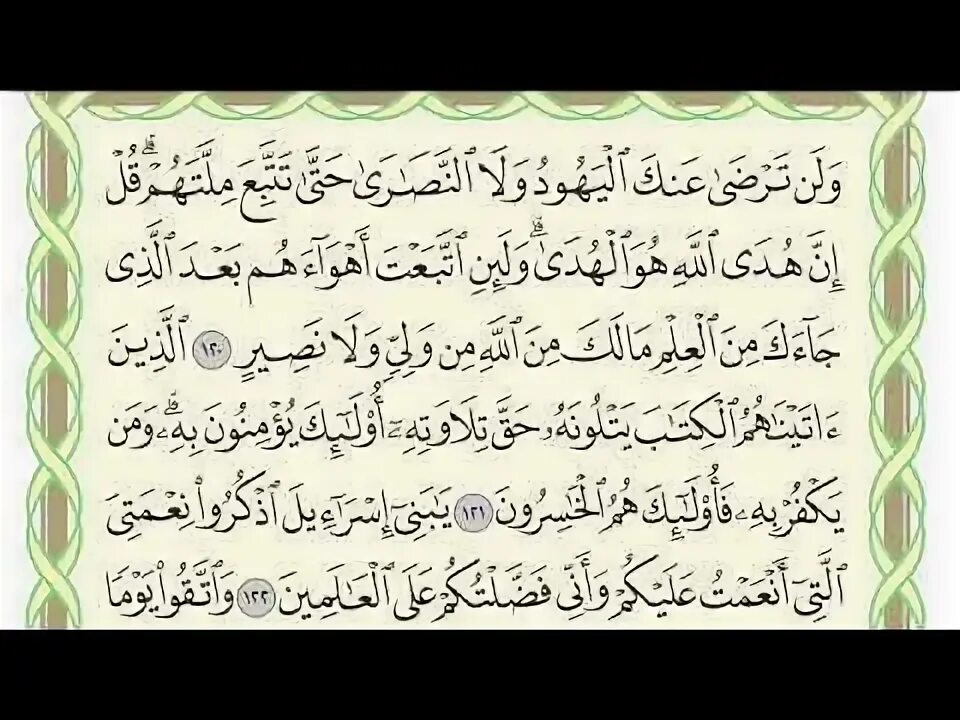 وَلَن تَرْضَىٰ عَنكَ ٱلْيَهُودُ وَلَا ٱلنَّصَـٰرَىٰ حَتَّىٰ تَتَّبِعَ مِلَّتَهُمْ ۗ قُلْ
إِنَّ هُدَى ٱللَّهِ هُوَ ٱلْهُدَىٰ ۗ وَلَئِنِ ٱتَّبَعْتَ أَهْوَآءَهُم بَعْدَ ٱلَّذِى
جَآءَكَ مِنَ ٱلْعِلْمِ مَا لَكَ مِنَ ٱللَّهِ مِن وَلِىٍّ وَلَا نَصِيرٍ ١٢٠ ٱلَّذِينَ
ءَاتَيْنَـٰهُمُ ٱلْكِتَـٰبَ يَتْلُونَهُۥ حَقَّ تِلَاوَتِهِۦٓ أُو۟لَـٰٓئِكَ يُؤْمِنُونَ بِهِۦ ۗ وَمَن
يَكْفُرْ بِهِۦ فَأُو۟لَـٰٓئِكَ هُمُ ٱلْخَـٰسِرُونَ ١٢١ يَـٰبَنِىٓ إِسْرَٰٓءِيلَ ٱذْكُرُوا۟ نِعْمَتِىَ
ٱلَّتِىٓ أَنْعَمْتُ عَلَيْكُمْ وَأَنِّى فَضَّلْتُكُمْ عَلَى ٱلْعَـٰلَمِينَ ١٢٢ وَٱتَّقُوا۟ يَوْمًا